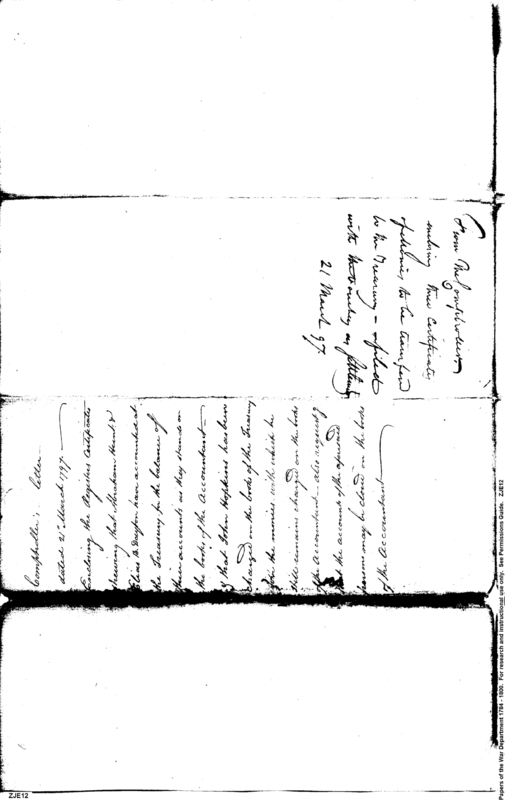 From the Comptroller
enclosing three Certificates
of Monies to be transferred
to the Treasury — & filed
with the vouchers on settling
21 March 97
Comptroller's letter
dated 21st March 1797 —
Enclosing the Registers Certificates
shewing that Abraham Hunt &
Elias B. Dayton have accounted at
the Treasury for the balance of
their accounts as they stand on
the books of the Accountant —
& that John Hopkins has been
charged in the books of the Treasury
for the monies with which he
still remains charged on the books
of the Accountant — also requesting
that the accounts of the aforesaid
persons may be closed on the books
of the Accountant —
Papers of the War Department 1784 - 1800. For research and instructional use only. See Permissions Guide. ZJE12
ZJE12